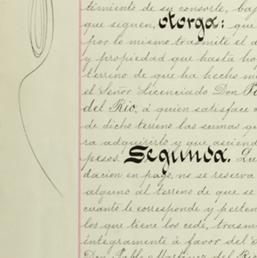 timiento de su consorte, baj
que siguen, otorga: que
por lo mismo trasmite el d
y propiedad que hasta ho
terreno de que ha hecho m
el Señor Licenciado Don P
del Rio, á quien satisface
de dicho terreno las sumas q
ra adquirirlo y que asciend
pesos. Segunda. Qu
dacion en pago, no se reserva
alguno al terreno de que se
cuanto le corresponde y perten
los que tiene los cede, trasm
íntegramente á favor del S
Don Pablo Martinez del Rio